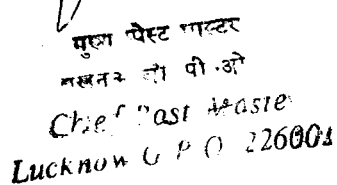 मुख्य पोस्ट मास्टर
लखनऊ जी पी.ओ
Chief Post Master
Lucknow G P O 226001